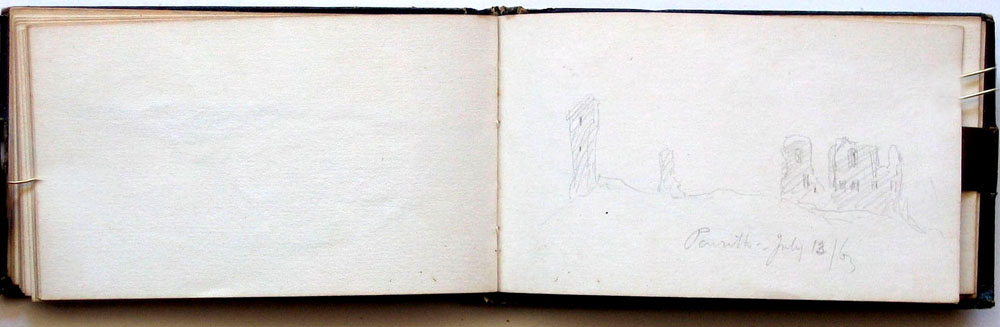 Penrith - July 13 /65